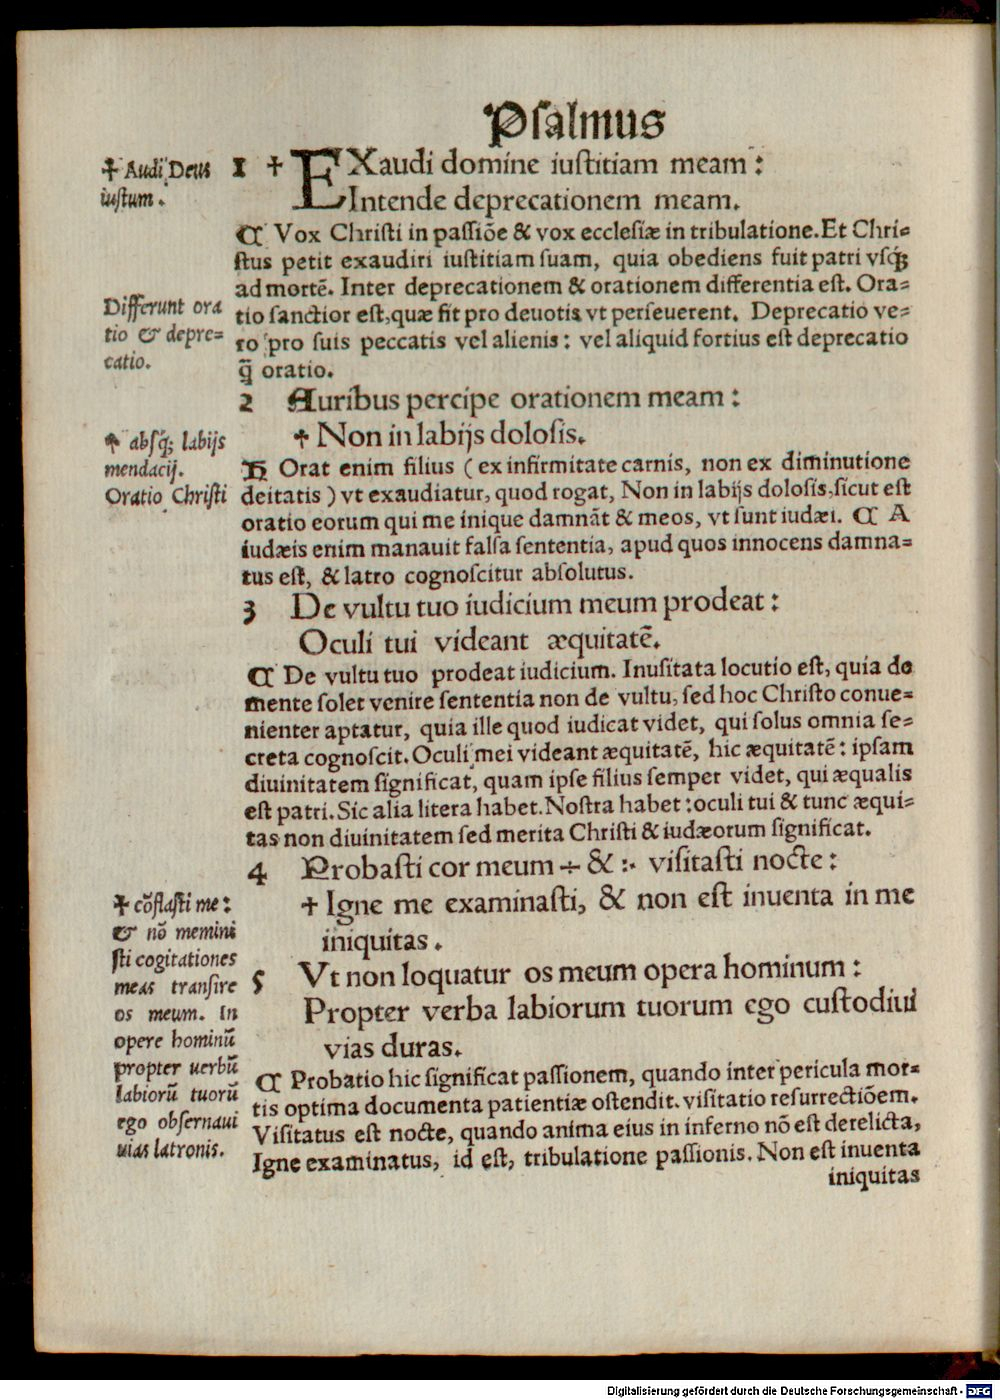 Psalmus
✝ Audi Deus
iustum.
1 ✝ EXaudi domine iustitiam meam:
Intende deprecationem meam.
¶ Vox Christi in passiõe & vox ecclesiæ in tribulatione. Et Chri=
stus petit exaudiri iustitiam suam, quia obediens fuit patri vsq̃
ad mortẽ. Inter deprecationem & orationem differentia est. Ora=
tio sanctior est, quæ fit pro deuotis vt perseuerent. Deprecatio ve=
ro pro suis peccatis vel alienis: vel aliquid fortius est deprecatio
q̃ oratio.
Differunt ora
tio & depre=
catio.
2 Auribus percipe orationem meam:
✝ Non in labijs dolosis.
✝ absq; labijs
mendacij.
Oratio Christi
¶ Orat enim filius (ex infirmitate carnis, non ex diminutione
deitatis) vt exaudiatur, quod rogat, Non in labijs dolosis, sicut est
oratio eorum qui me inique damnãt & meos, vt sunt iudæi. ¶ A
iudæis enim manauit falsa sententia, apud quos innocens damna=
tus est, & latro cognoscitur absolutus.
3 De vultu tuo iudicium meum prodeat:
Oculi tui videant æquitatẽ.
¶ De vultu tuo prodeat iudicium. Inusitata locutio est, quia de
mente solet venire sententia non de vultu, sed hoc Christo conue=
nienter aptatur, quia ille quod iudicat videt, qui solus omnia se=
creta cognoscit. Oculi mei videant æquitatẽ, hic æquitatẽ: ipsam
diuinitatem significat, quam ipse filius semper videt, qui æqualis
est patri. Sic alia litera habet. Nostra habet: oculi tui & tunc æqui=
tas non diuinitatem sed merita Christi & iudæorum significat.
4 Probasti cor meum ÷ & :· visitasti nocte:
✝ Igne me examinasti, & non est inuenta in me
iniquitas.
✝ cõflasti me:
& nõ memini
sti cogitationes
meas transire
os meum. In
opere hominũ
propter uerbũ
labiorũ tuorũ
ego obseruaui
uias latronis.
5 Vt non loquatur os meum opera hominum:
Propter verba labiorum tuorum ego custodiui
vias duras.
¶ Probatio hic significat passionem, quando inter pericula mor=
tis optima documenta patientiæ ostendit. visitatio resurrectiõem.
Visitatus est nocte, quando anima eius in inferno nõ est derelicta,
Igne examinatus, id est, tribulatione passionis. Non est inuenta
iniquitas
Digitalisierung gefördert durch die Deutsche Forschungsgemeinschaft - DFG